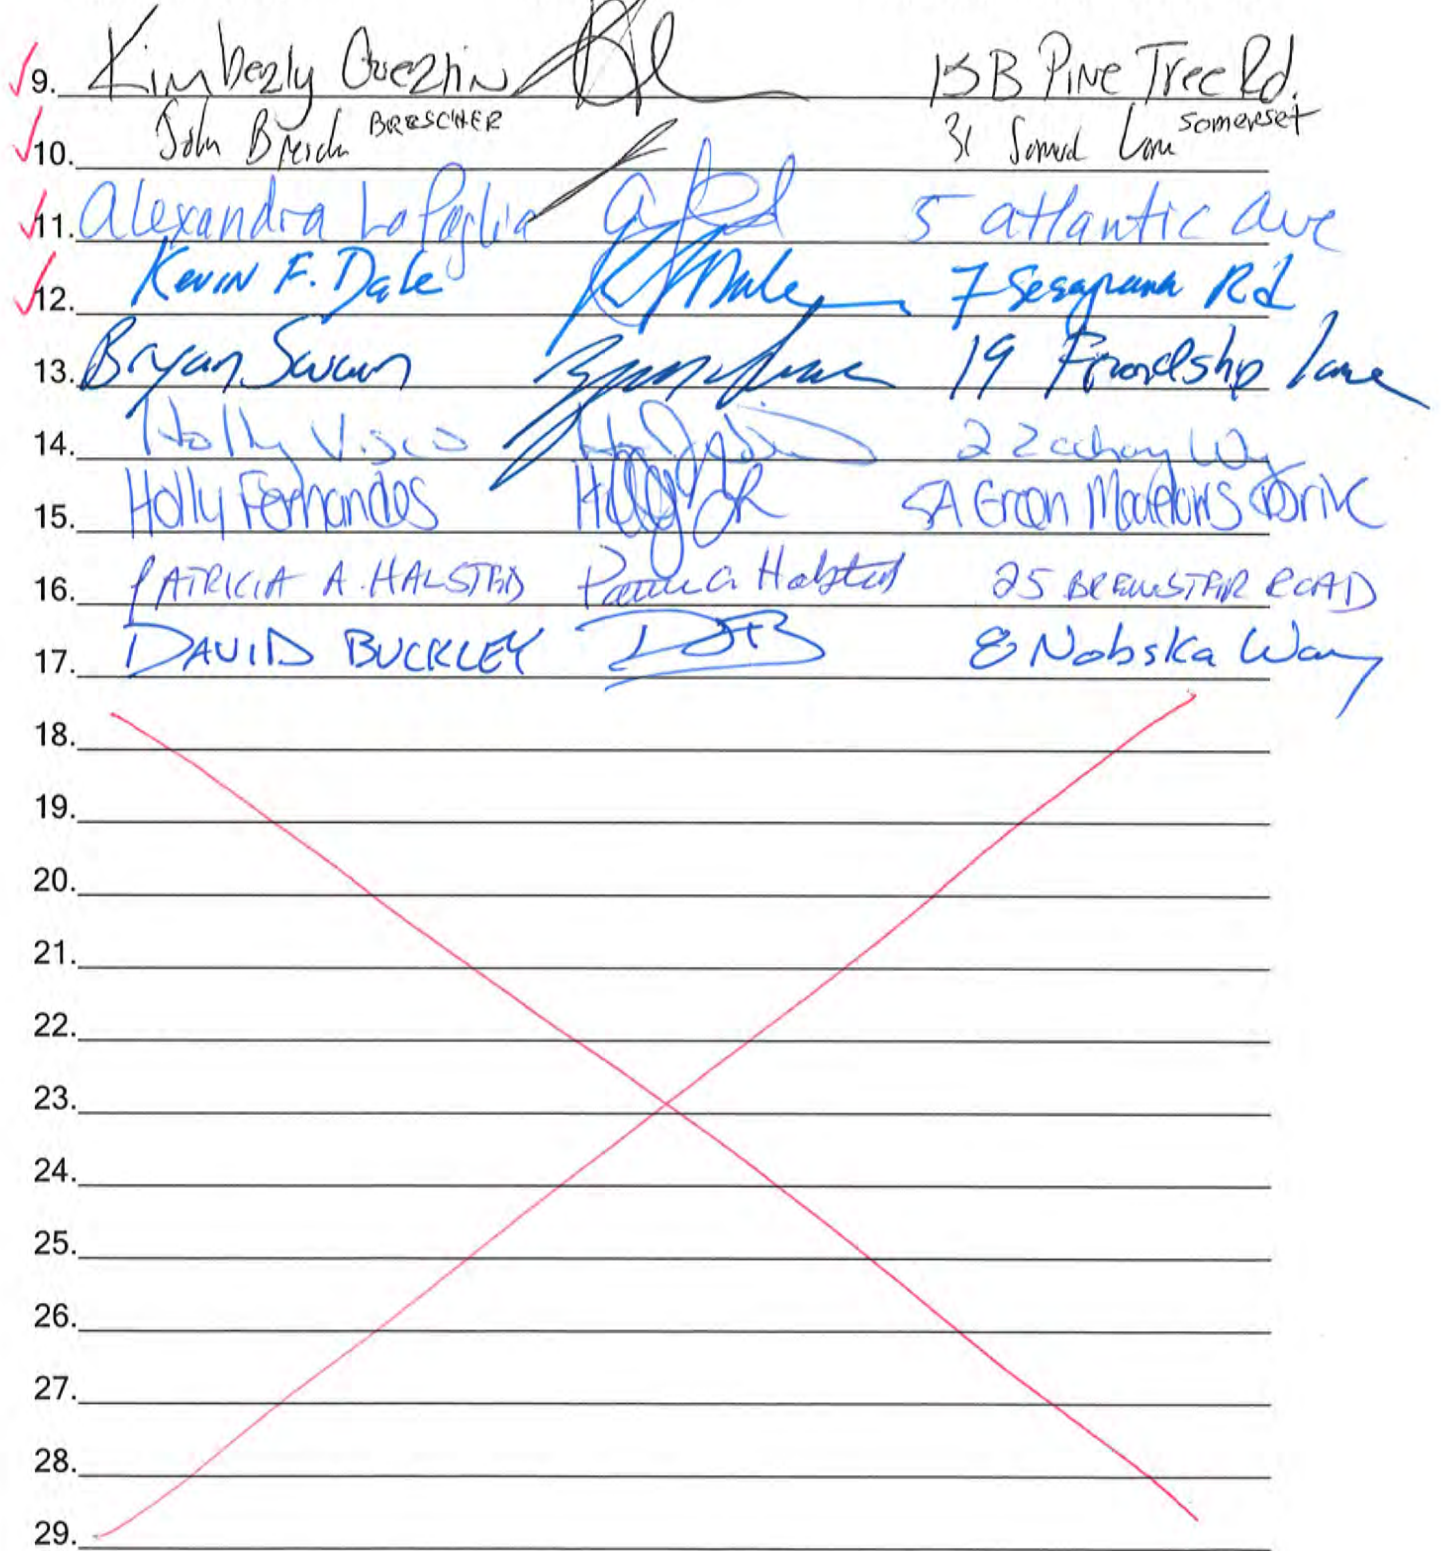 9. Kimberly Guezhin 15B Pine Tree Rd.
10. John BRESCHER 31 Lane Somerset
11. Alexandra LaPaglia 5 atlantic ave
12. Kevin F. Dale 7 Sesapana Rd
13. Bryan Swain 19 Friendship Lane
14. Holly Visco 2 Zachary Wy
15. Holly Fernandes 5A Green Meadows Drive
16. PATRICIA A. HALSTED Patricia Halsted 25 BREWSTER ROAD
17. DAVID BUCKLEY DB 8 Nobska Way
18.
19.
20.
21.
22.
23.
24.
25.
26.
27.
28.
29.